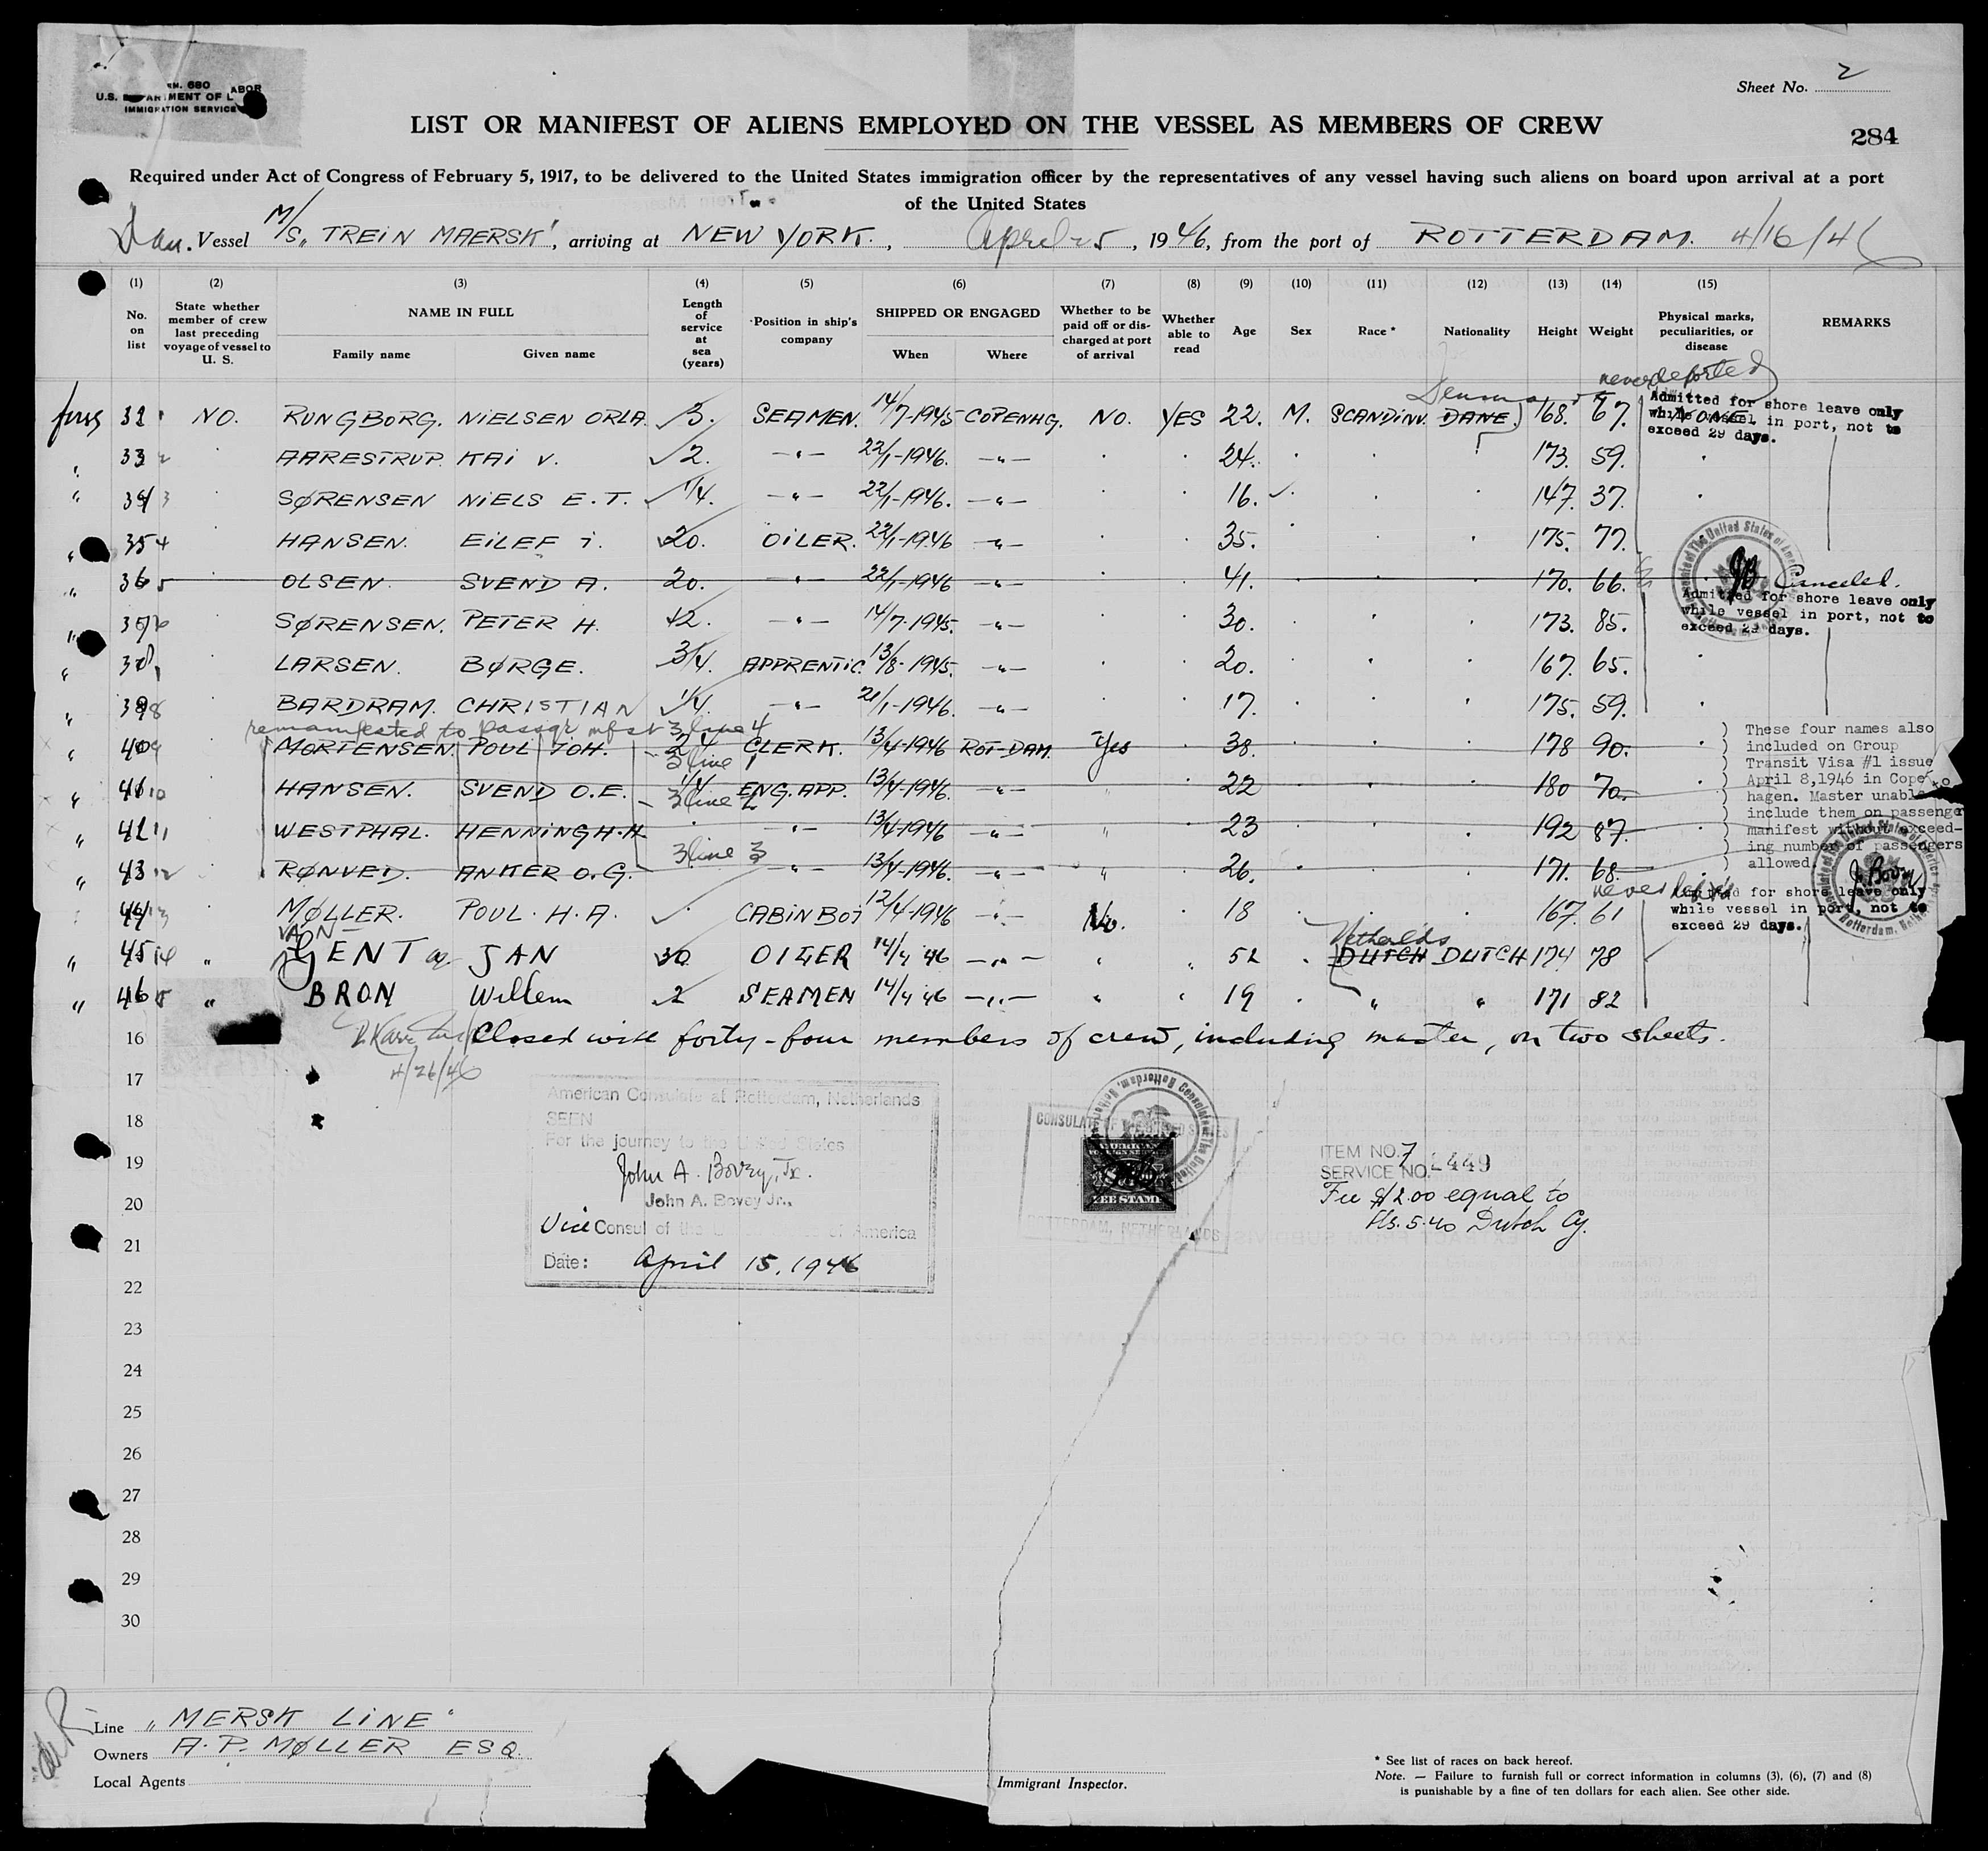 U.S. DEPARTMENT OF LABOR
IMMIGRATION SERVICE
Sheet No. 2
LIST OR MANIFEST OF ALIENS EMPLOYED ON THE VESSEL AS MEMBERS OF CREW
284
Required under Act of Congress of February 5, 1917, to be delivered to the United States immigration officer by the representatives of any vessel having such aliens on board upon arrival at a port
of the United States
Dan. Vessel M/S „TREIN MAERSK", arriving at NEW YORK., April 25, 1946, from the port of ROTTERDAM. 4/16/46
(1) (2) (3) (4) (5) (6) (7) (8) (9) (10) (11) (12) (13) (14) (15)
No. on list
State whether member of crew last preceding voyage of vessel to U. S.
NAME IN FULL
Family name Given name
Length of service at sea (years)
Position in ship's company
SHIPPED OR ENGAGED
When Where
Whether to be paid off or discharged at port of arrival
Whether able to read
Age
Sex
Race *
Nationality
Height
Weight
Physical marks, peculiarities, or disease
REMARKS
never deported
Admitted for shore leave only
while vessel in port, not to
exceed 29 days.
NO. RUNGBORG. NIELSEN ORLA. 3. SEAMEN. 14/7-1945 COPENHG. NO. YES 22. M. SCANDINV. DANE. 168. 67. NONE
33 2 AARESTRUP. KAI V. 2. -"- 22/1-1946. -"- 24. 173. 59.
34 3 SØRENSEN NIELS E.T. 1/4. -"- 22/1-1946. -"- 16. 147. 37.
35 4 HANSEN. EILEF i. 20. OILER. 22/1-1946 -"- 35. 175. 77.
36 5 OLSEN. SVEND A. 20. -"- 22/1-1946 -"- 41. 170. 66. Canceled.
Admitted for shore leave only
while vessel in port, not to
exceed 29 days.
37 6 SØRENSEN. PETER H. 12. -"- 14/7-1945. -"- 30. 173. 85.
LARSEN. BØRGE. 3/4. APPRENTIC. 13/8-1945. -"- 20. 167. 65.
39 8 BARDRAM. CHRISTIAN 1/4. -"- 21/1-1946. -"- 17. 175. 59.
remanifested to passgr mfst 3 line 4
40 9 MORTENSEN. POUL JOH. 24 CLERK. 13/4-1946 ROT-DAM. Yes 38. 178 90.
3 line 1
41 10 HANSEN. SVEND O.E. 1/4 ENG. APP. 13/4-1946. -"- " 22 180 70.
3 line 2
42 11 WESTPHAL. HENNING H.H. -"- 13/4-1946 -"- " 23 192 87.
3 line 3
43 12 RØNVED. ANKER O.G. -"- 13/4-1946. -"- " 26. 171. 68.
These four names also
included on Group
Transit Visa #1 issue
April 8,1946 in Cope
hagen. Master unable to
include them on passenge
manifest without exceed-
ing number of passengers
allowed.
44 13 MØLLER. POUL. H.A. CABIN BOY 12/4-1946 -"- No. 18 167. 61
Admitted for shore leave only
while vessel in port, not to
exceed 29 days.
VAN
45 14 " GENT JAN 30 OILER 14/4 46 -"- " " 52 Netherlds DUTCH DUTCH 174 78
46 15 " BRON Willem 2 SEAMEN 14/4 46 -"- " " 19 " " 171 82
16 Closed with forty-four members of crew, including master, on two sheets.
4/26/46
17
American Consulate at Rotterdam, Netherlands
18 SEEN
For the journey to the United States
19 John A. Bovey, Jr.
20 John A. Bovey Jr.,
Vice Consul of the United States of America
21 Date: April 15, 1946
CONSULATE OF THE UNITED STATES
FEE STAMP
ROTTERDAM, NETHERLANDS
ITEM NO. 7
SERVICE NO. 2449
Fee $2.00 equal to
Fls. 5.40 Dutch Cy.
22
23
24
25
26
27
28
29
30
Line „MERSK LINE"
Owners A. P. MØLLER ESQ.
Local Agents
Immigrant Inspector.
* See list of races on back hereof.
Note. — Failure to furnish full or correct information in columns (3), (6), (7) and (8)
is punishable by a fine of ten dollars for each alien. See other side.